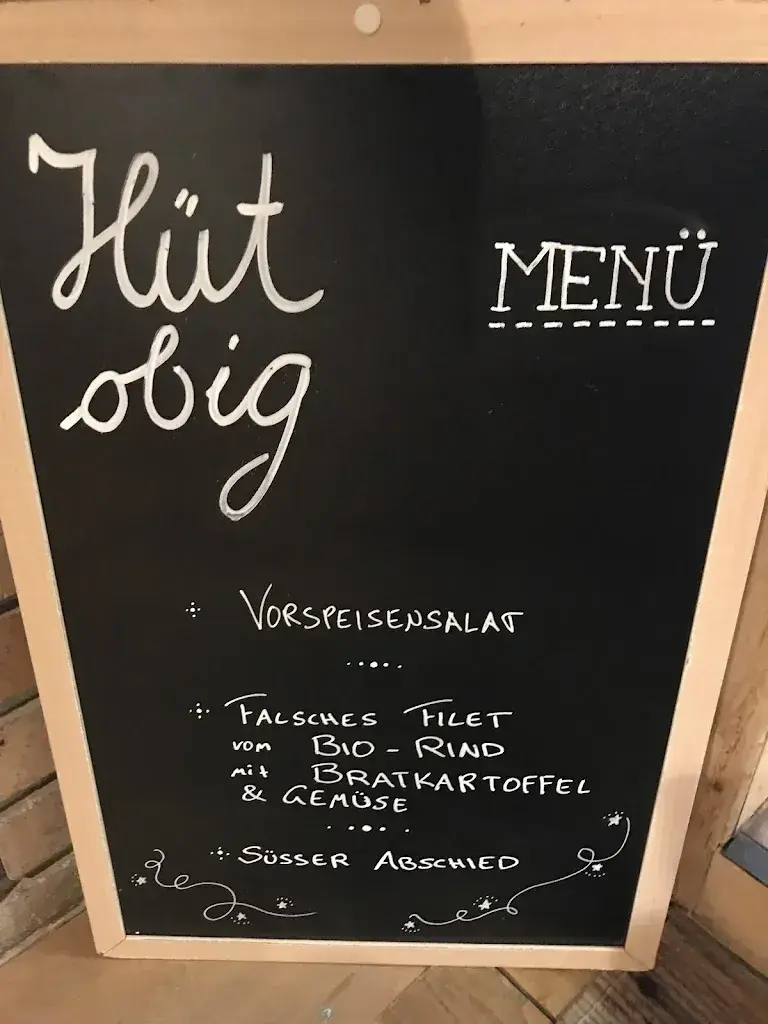 Hüt
obig
MENÜ
VORSPEISENSALAT
FALSCHES FILET
vom BIO-RIND
mit BRATKARTOFFEL
& GEMÜSE
SÜSSER ABSCHIED